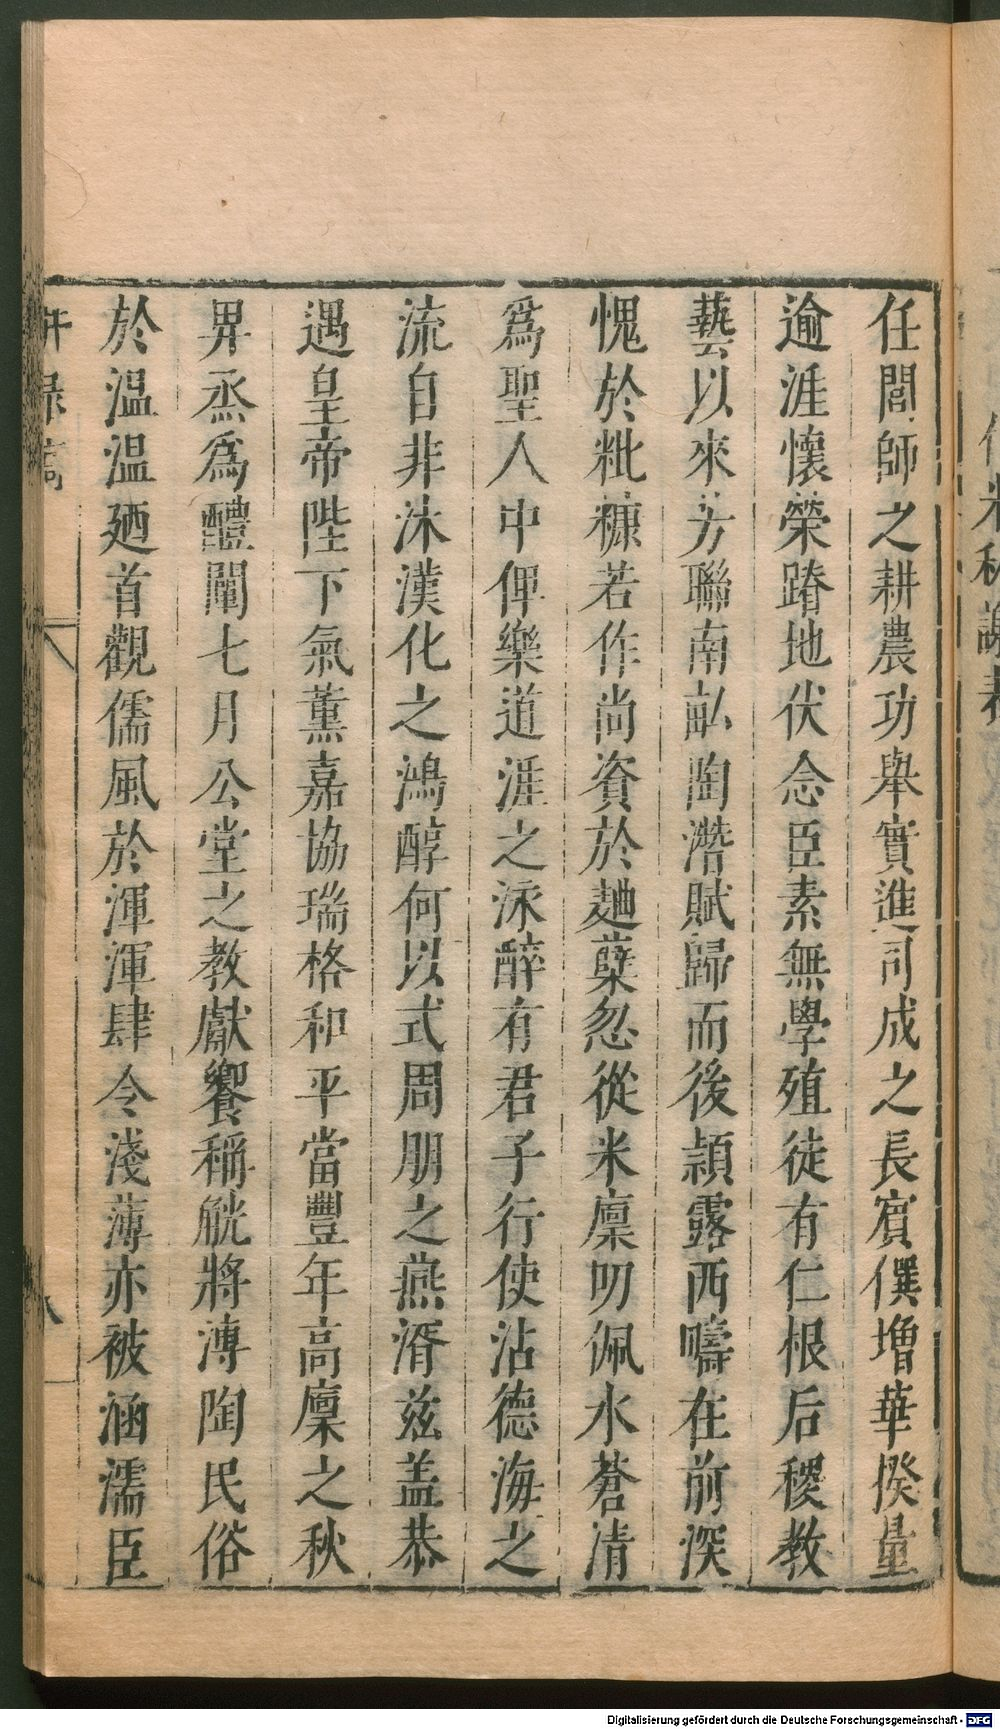 任閭師之耕農功舉實進司成之長賓僎增華揆量
逾涯懷榮蹐地伏念臣素無學殖徒有仁根后稷教
藝以來方聯南畝陶潛賦歸而後穎露西疇在前深
愧於粃糠若作尚資於麯糵忽從米廩叨佩水蒼清
爲聖人中俾樂道涯之泳醉有君子行使沾德海之
流自非沐漢化之鴻醇何以式周朋之燕湑兹盖恭
遇皇帝陛下氣薰嘉協瑞格和平當豐年高廪之秋
畀烝爲醴闡七月公堂之教獻饗稱觥將漙陶民俗
於溫溫廼首觀儒風於渾渾肆令淺薄亦被涵濡臣
八
Digitalisierung gefördert durch die Deutsche Forschungsgemeinschaft - DFG